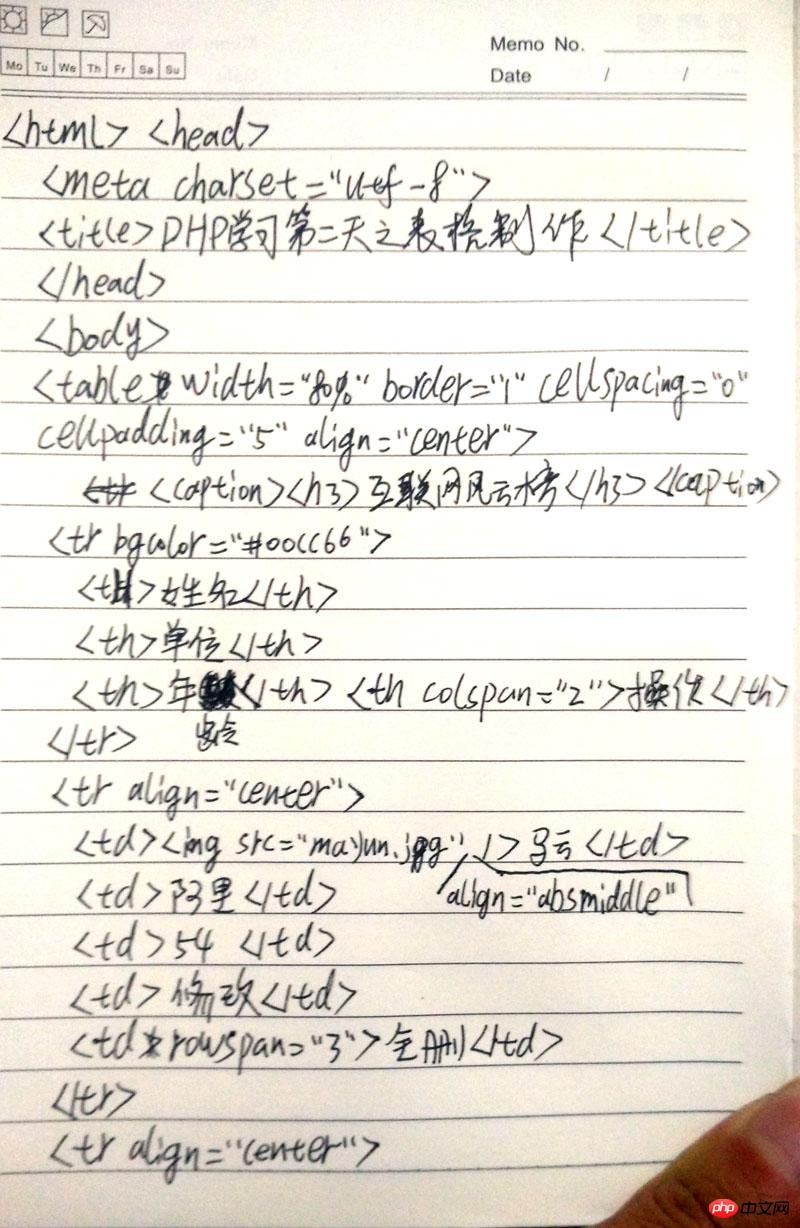 Memo No.
Mo Tu We Th Fr Sa Su
Date / /
<html> <head>
<meta charset="utf-8">
<title>PHP学习第二天之表格制作</title>
</head>
<body>
<table width="80%" border="1" cellspacing="0"
cellpadding="5" align="center">
<caption><h3>互联网风云榜</h3></caption>
<tr bgcolor="#00CC66">
<th>姓名</th>
<th>单位</th>
<th>年</th> <th colspan="2">操作</th>
龄
</tr>
<tr align="center">
<td><img src="mayun.jpg" />马云</td>
align="absmiddle"
<td>阿里</td>
<td>54 </td>
<td>修改</td>
<td rowspan="3">全删</td>
</tr>
<tr align="center">
php 中文网